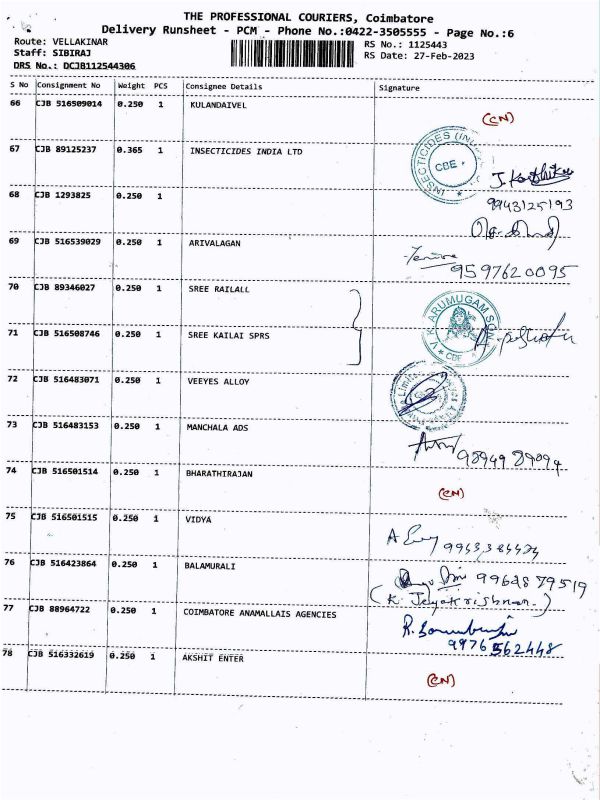 THE PROFESSIONAL COURIERS, Coimbatore
Delivery Runsheet - PCM - Phone No.:0422-3505555 - Page No.:6
Route: VELLAKINAR RS No.: 1125443
Staff: SIBIRAJ RS Date: 27-Feb-2023
DRS No.: DCJB112544306
S No Consignment No Weight PCS Consignee Details Signature
66 CJB 516509014 0.250 1 KULANDAIVEL (CN)
67 CJB 89125237 0.365 1 INSECTICIDES INDIA LTD
INSECTICIDES (IN
CBE
9943125193
68 CJB 1293825 0.250 1
69 CJB 516539029 0.250 1 ARIVALAGAN
9597620095
70 CJB 89346027 0.250 1 SREE RAILALL
71 CJB 516508746 0.250 1 SREE KAILAI SPRS
V. K. ARUMUGAM SON
CBE
72 CJB 516483071 0.250 1 VEEYES ALLOY
73 CJB 516483153 0.250 1 MANCHALA ADS
74 CJB 516501514 0.250 1 BHARATHIRAJAN (CN)
75 CJB 516501515 0.250 1 VIDYA
76 CJB 516423864 0.250 1 BALAMURALI
(K. Jeyakrishnan.)
77 CJB 88964722 0.250 1 COIMBATORE ANAMALLAIS AGENCIES
9976562448
78 CJB 516332619 0.250 1 AKSHIT ENTER (CN)